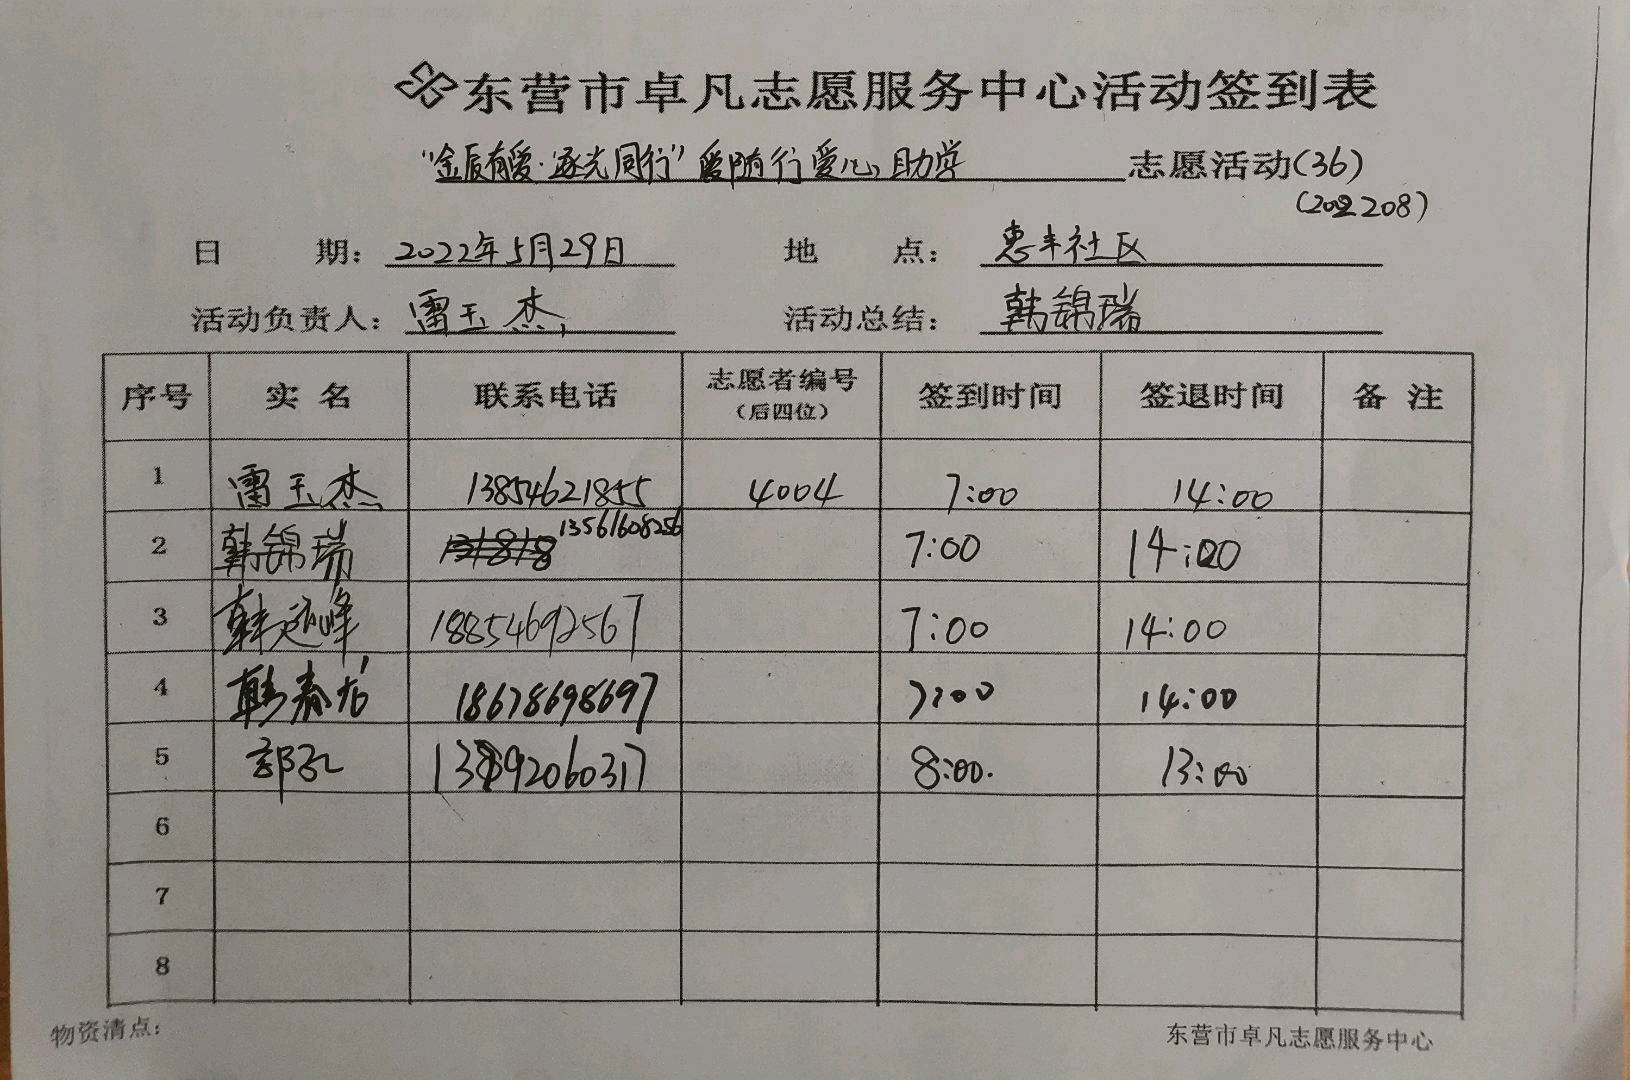 东营市卓凡志愿服务中心活动签到表
“金辰有爱·逐光同行”爱随行爱心助学 志愿活动(36)
(2022208)
日 期: 2022年5月29日 地 点: 惠丰社区
活动负责人: 雷玉杰 活动总结: 韩锦瑞
序号 实 名 联系电话 志愿者编号 (后四位) 签到时间 签退时间 备 注
1 雷玉杰 13854621855 4004 7:00 14:00
2 韩锦瑞 13561608256 7:00 14:00
3 韩延峰 18854692567 7:00 14:00
4 韩春龙 18678698697 7:00 14:00
5 郭孔 13892060317 8:00. 13:00
6
7
8
物资清点: 东营市卓凡志愿服务中心